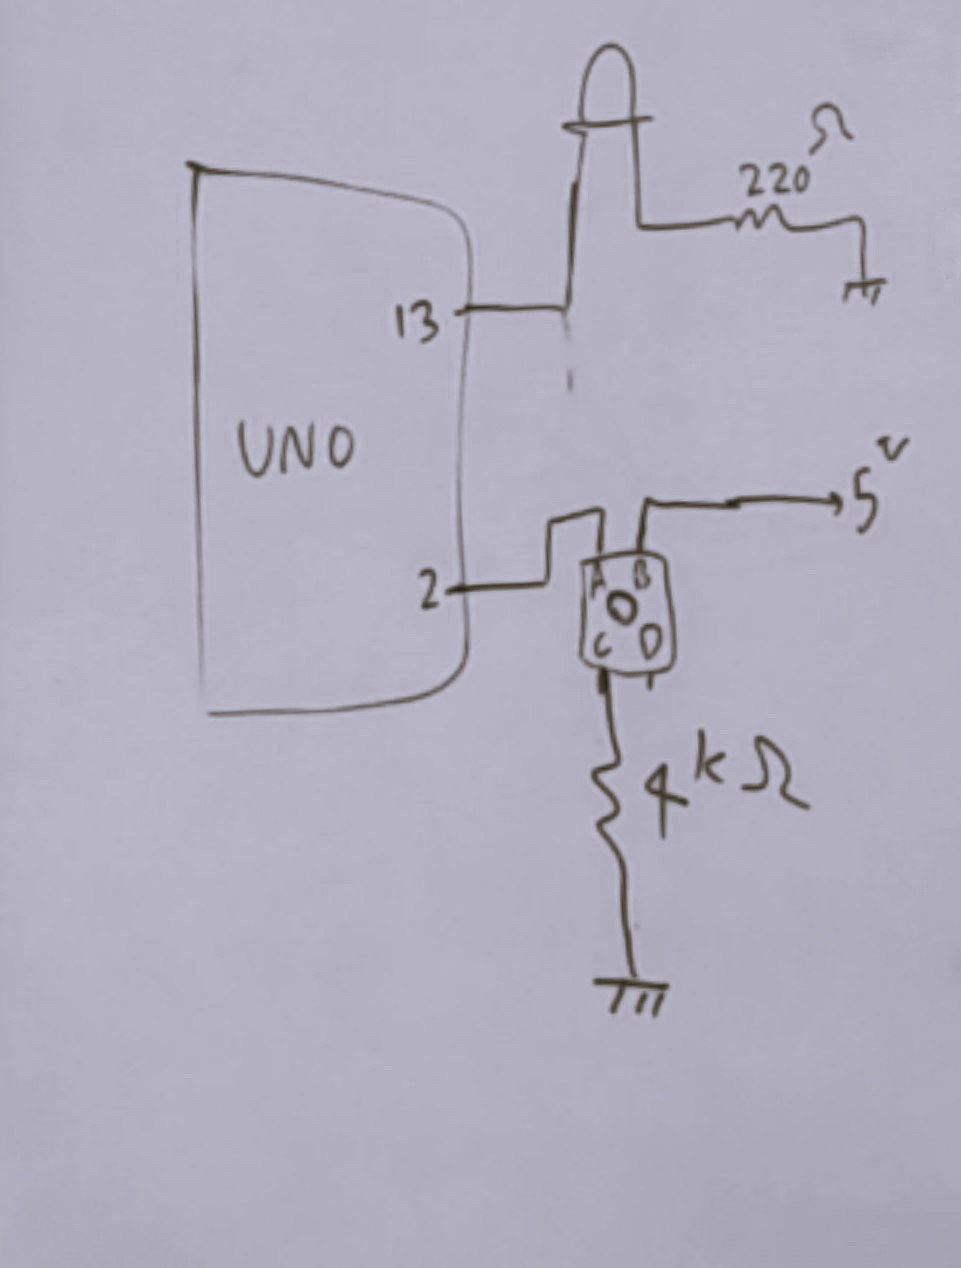 220 Ω
13
UNO
5 v
2
A B
C D
4 k Ω